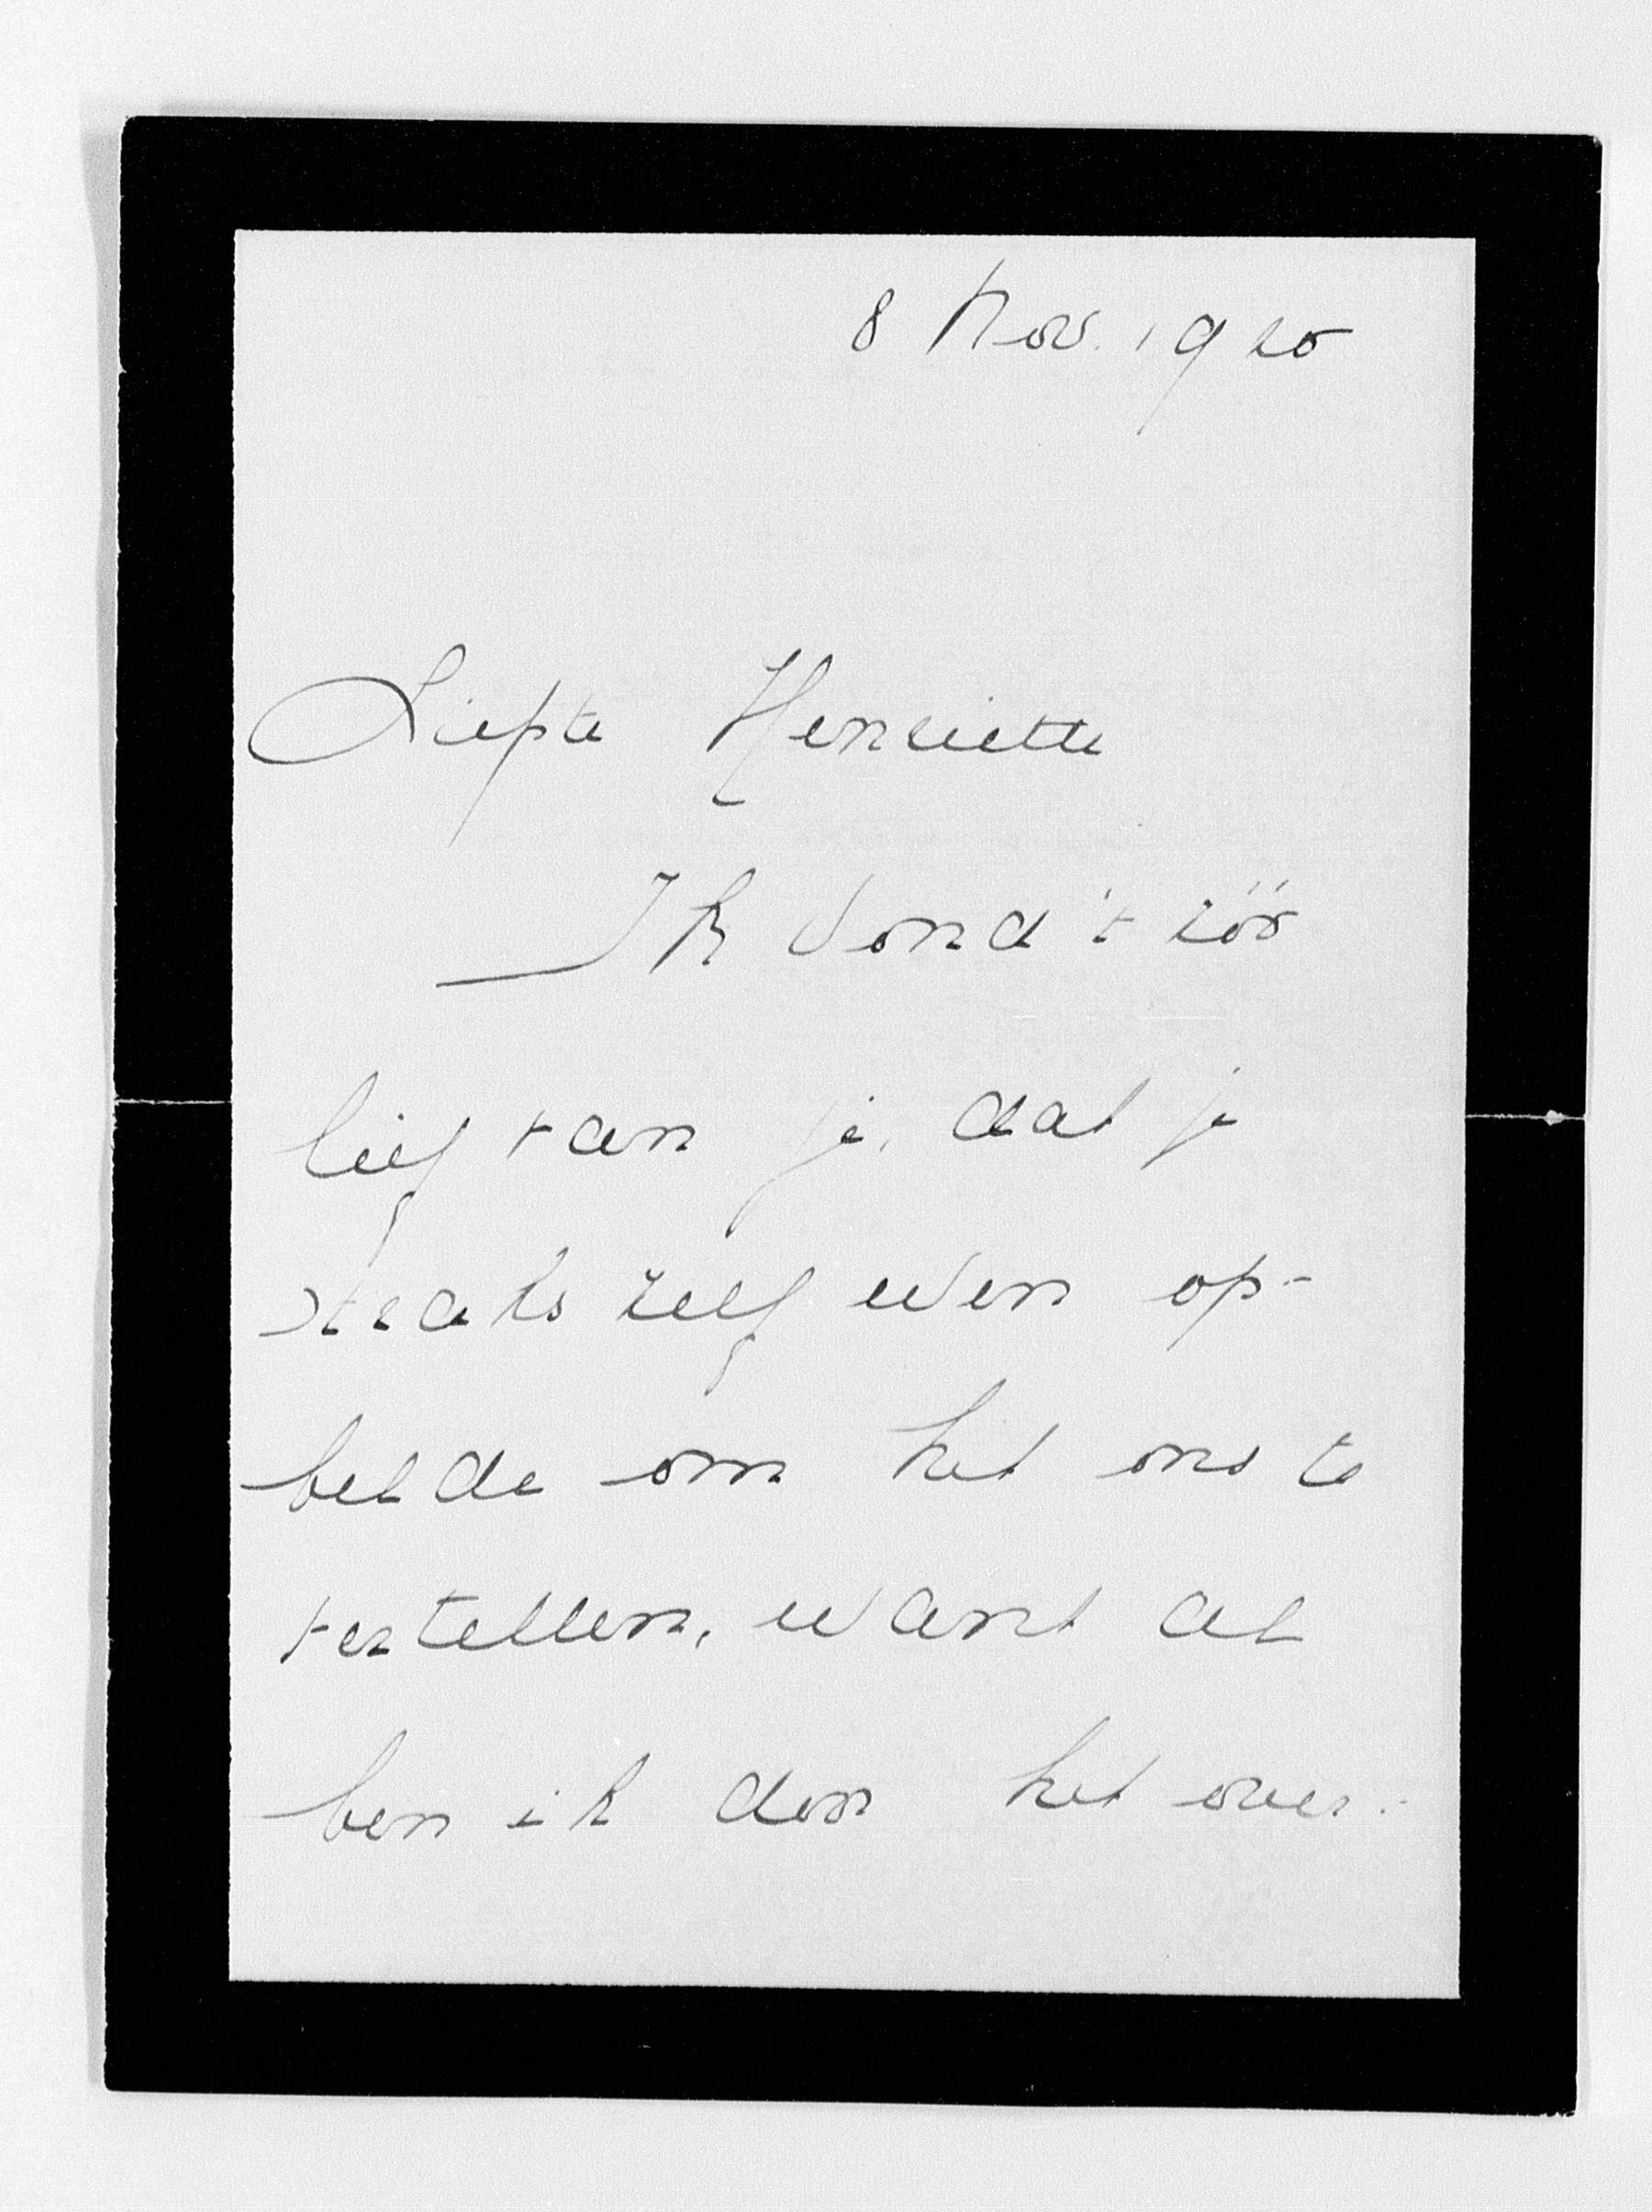 8 Nov. 1920
Liefste Henriette
Ik vond 't zóó
lief van je, dat je
straks zelf even op-
belde om het ons te
vertellen, want al
ben ik don het over-